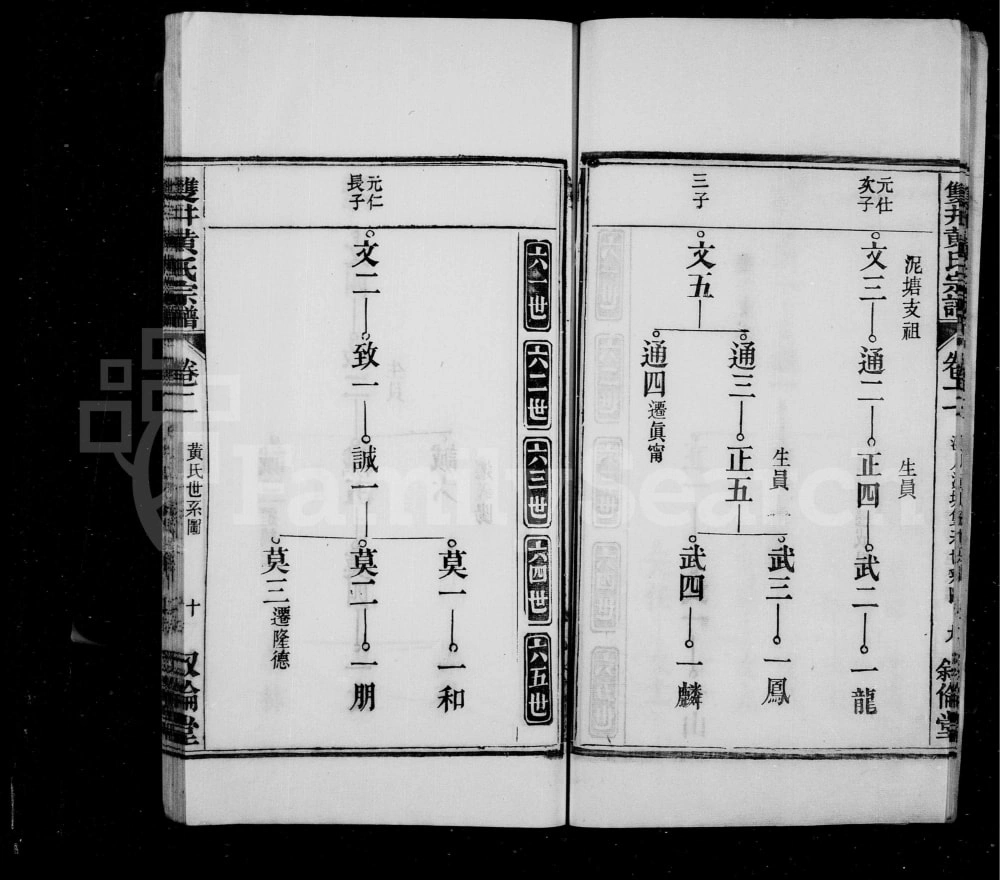 雙井黃氏宗譜
卷二
九
敘倫堂
泥塘支祖
生員
元仕
次子
文三
通二
正四
武二
一龍
三子
文五
通三
正五
生員
武三
一鳳
武四
一麟
通四
遷眞甯
六一世
六二世
六三世
六四世
六五世
元仁
長子
文二
致一
誠一
莫一
一和
莫二
一朋
莫三
遷隆德
雙井黃氏宗譜
卷二
黃氏世系圖
十
敘倫堂
FamilySearch